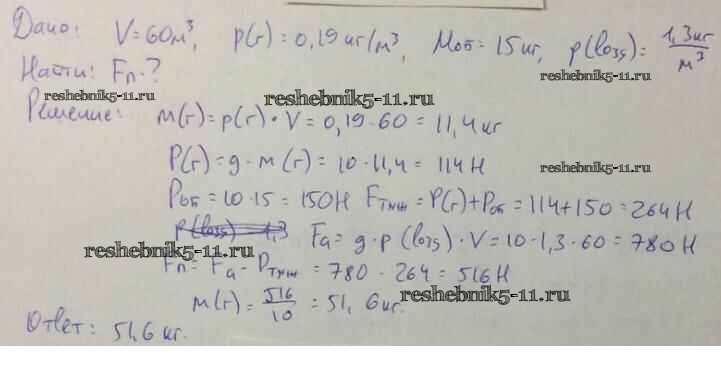 Дано: V=60м³, p(г)=0,19кг/м³, Mоб=15кг, p(возд)=1,3кг/м³
Найти: Fп-?
reshebnik5-11.ru
reshebnik5-11.ru
reshebnik5-11.ru
Решение: m(г)=p(г)·V=0,19·60=11,4кг
P(г)=g·m(г)=10·11,4=114Н
reshebnik5-11.ru
Pоб=10·15=150Н Fтяж=P(г)+Pоб=114+150=264Н
p(возд) 1,3 Fа=g·p(возд)·V=10·1,3·60=780Н
reshebnik5-11.ru
Fп=Fа-Pтяж=780-264=516Н
m(г)=516/10=51,6кг.
reshebnik5-11.ru
Ответ: 51,6 кг.